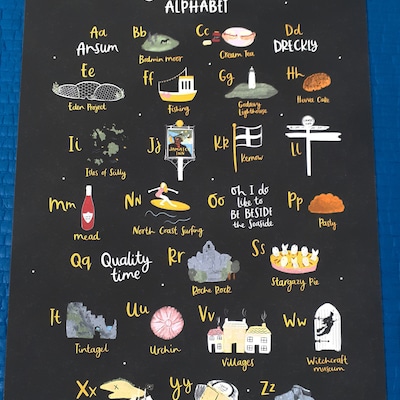 ALPHABET
Aa Bb Cc Dd
Ansum Bodmin moor Cream Tea DRECKLY
Ee Ff Gg Hh
Eden Project Fishing Godrevy Lighthouse Hevva Cake
Ii Jj Kk Ll
JAMAICA INN
Isles of Scilly Kernow
Mm Nn Oo Pp
mead North Coast Surfing
oh I do
like to
BE BESIDE
the Seaside
Pasty
Qq Rr Ss
Quality
time
Roche Rock Stargazy Pie
Tt Uu Vv Ww
Tintagel Urchin Villages Witchcraft
museum
Xx Yy Zz